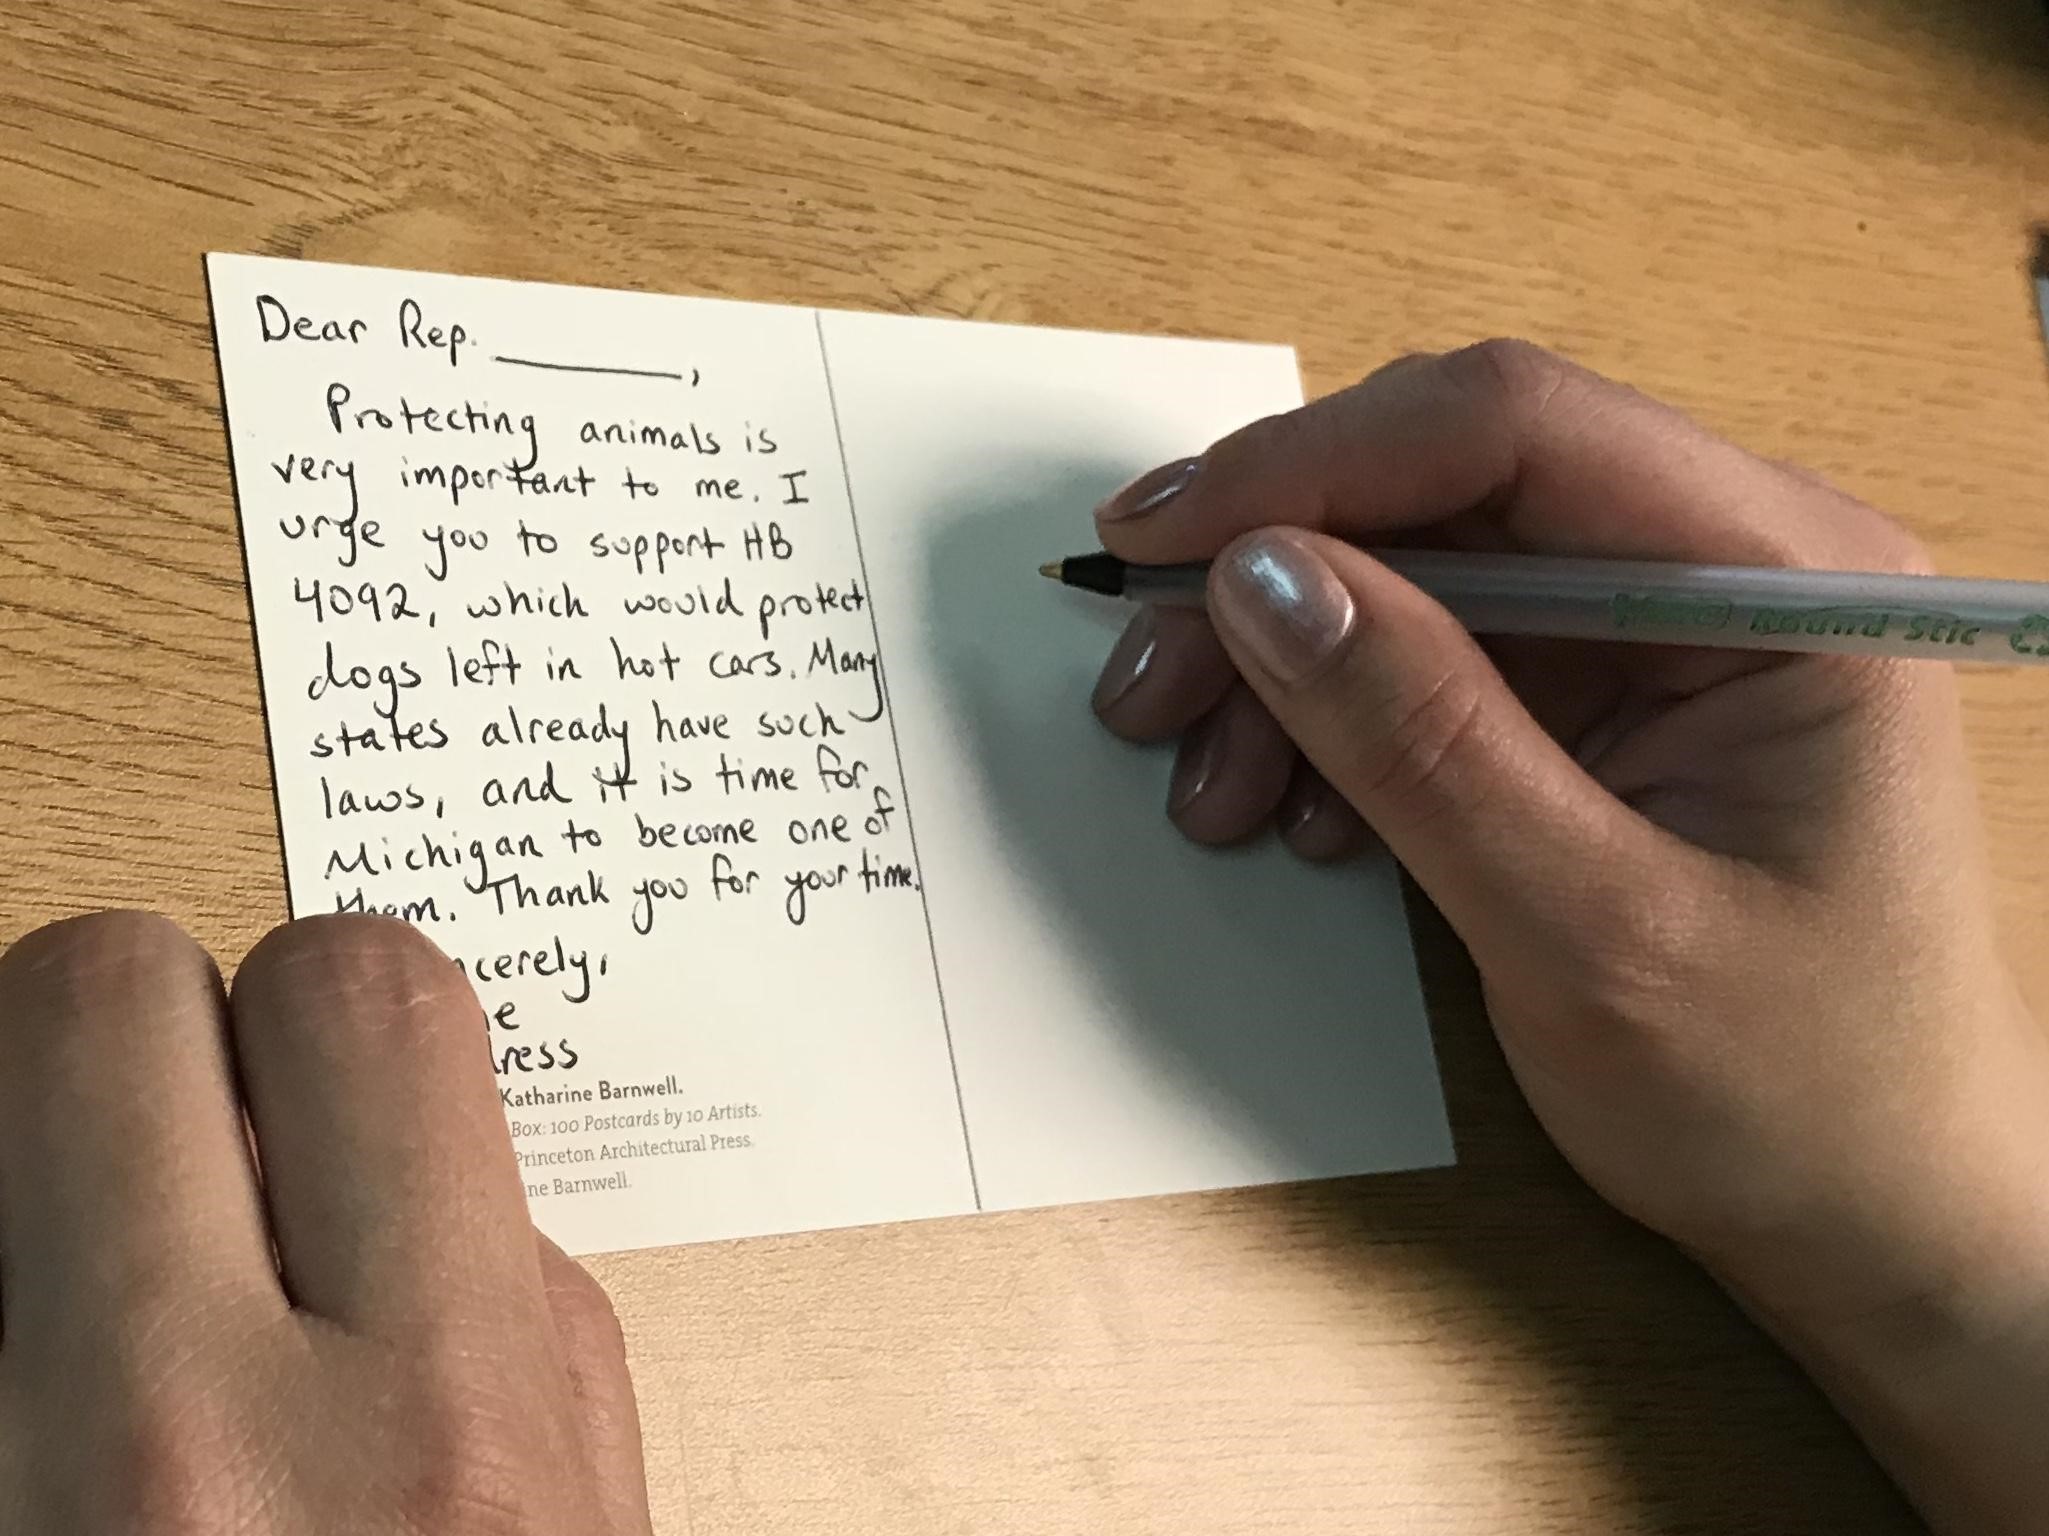 Dear Rep. ________,
Protecting animals is
very important to me. I
urge you to support HB
4092, which would protect
dogs left in hot cars. Many
states already have such
laws, and it is time for
Michigan to become one of
them. Thank you for your time.
ncerely,
e
ress
Katharine Barnwell.
Box: 100 Postcards by 10 Artists.
Princeton Architectural Press.
ine Barnwell.
Round Stic